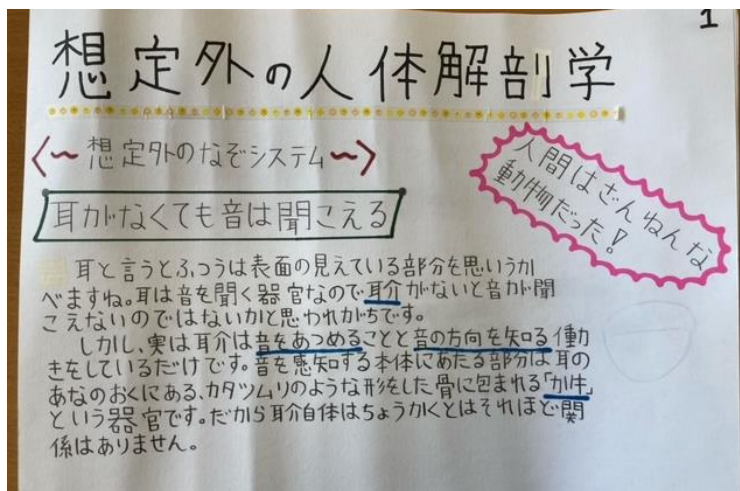 1
想定外の人体解剖学
想定外のなぞシステム
人間はざんねんな
動物だった!
耳がなくても音は聞こえる
耳と言うとふつうは表面の見えている部分を思いうか
べますね。耳は音を聞く器官なので耳介がないと音が聞
こえないのではないかと思われがちです。
しかし、実は耳介は音をあつめることと音の方向を知る働
きをしているだけです。音を感知する本体にあたる部分は耳の
あなのおくにある、カタツムリのような形をした骨に包まれる「か牛」
という器官です。だから耳介自体はちょうかくとはそれほど関
係はありません。